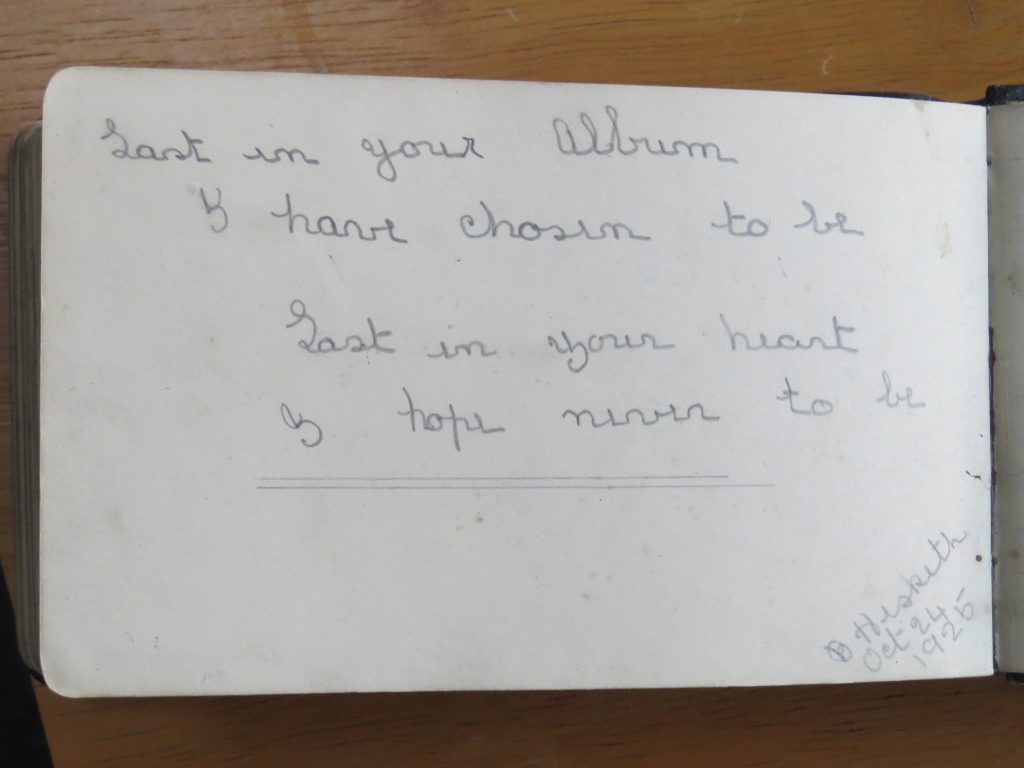 Last in your Album
I have chosen to be
Last in your heart
I hope never to be
Hesketh
Oct 24
1925